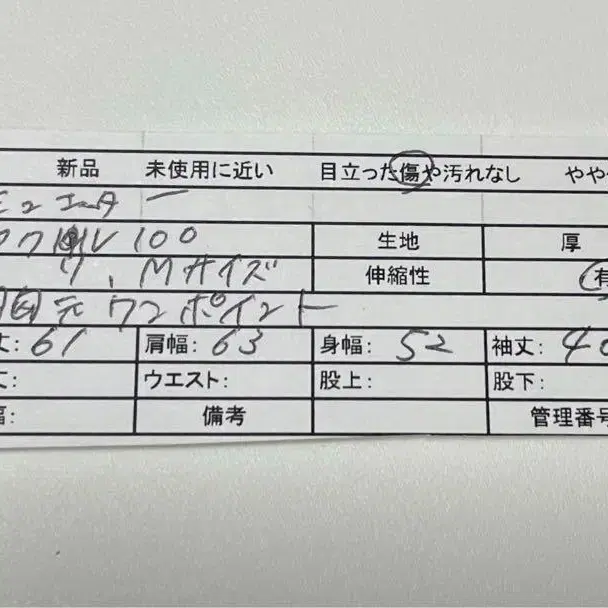 新品 未使用に近い 目立った傷や汚れなし やや
ミュエター
アクリル100 生地 厚
り、Mサイズ 伸縮性 有
胸元ワンポイント
丈:61 肩幅:63 身幅:52 袖丈:40
丈: ウエスト: 股上: 股下:
幅: 備考 管理番号